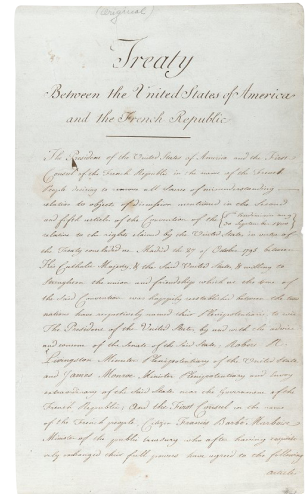 (Original)
Treaty
Between the United States of America
and the French Republic
The President of the United States of America and the First
Consul of the French Republic in the name of the French
People desiring to remove all Source of misunderstanding
relative to objects of discussion mentioned in the Second
and fifth articles of the Convention of the
relative to the rights claimed by the United States in virtue of
the Treaty concluded at Madrid the 27 of October 1795 between
His Catholic Majesty, & the Said United States, & willing to
Strengthen the union and friendship which at the time of
the Said Convention was happily reestablished between the two
nations have respectively named their Plenipotentiaries to wit
The President of the United States, by and with the advice
and consent of the Senate of the Said States, Robert R.
Livingston Minister Plenipotentiary of the United States
and James Monroe Minister Plenipotentiary and Envoy
extraordinary of the Said States near the Government of the
French Republic; And the First Consul in the name
of the French people, Citizen Francis Barbé Marbois
Minister of the public treasury who after having respectively
exchanged their full powers have agreed to the following
articles